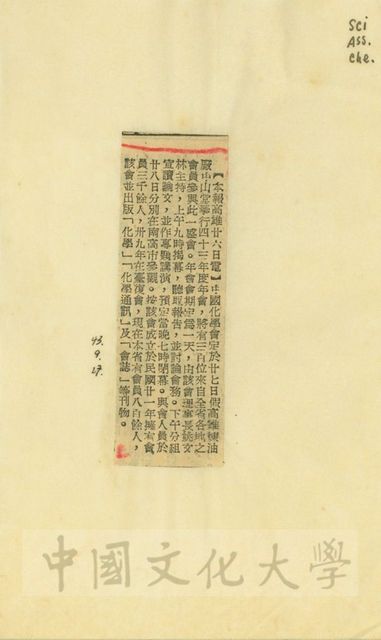 Sci
Ass.
Che.
【本報高雄廿六日電】中國化學會定於廿七日假高雄煉油
廠中山堂舉行四十三年度年會，將有三百位來自全省各地之
會員參與此一盛會。年會會期定為一天，由該會理事長
林主持，上午九時揭幕，聽取報告，並討論會務。下午分組
宣讀論文，並作專題講演，預定當晚七時閉幕。與會人員於
廿八日分別在南高市參觀。按該會成立於民國廿一年擁有會
員三千餘人，卅九年在臺復會，現在本省有會員八百餘人，
該會並出版「化學」「化學通訊」及「會誌」等刊物。
43.
9.
27.
中國文化大學